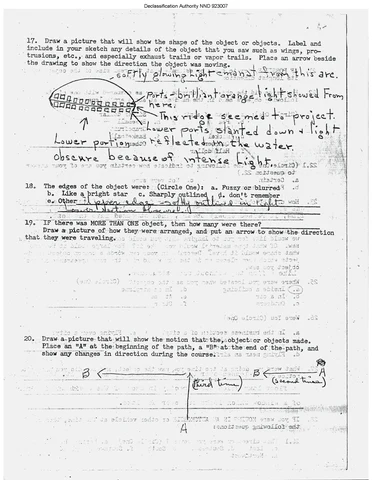 Declassification Authority NND 923007
17. Draw a picture that will show the shape of the object or objects. Label and
include in your sketch any details of the object that you saw such as wings, pro-
trusions, etc., and especially exhaust trails or vapor trails. Place an arrow beside
the drawing to show the direction the object was moving.
softly glowing light from this arc.
Ports - brilliant orange light showed from
here.
This ridge seemed to project.
Lower ports slanted down & light
reflected on the water.
Lower portion
obscure because of intense light
18. The edges of the object were: (Circle One): a. Fuzzy or blurred
b. Like a bright star c. Sharply outlined d. don't remember
e. Other upper edge softly outlined in light
lower
19. IF there was MORE THAN ONE object, then how many were there?
Draw a picture of how they were arranged, and put an arrow to show the direction
that they were traveling.
20. Draw a picture that will show the motion that the object or objects made.
Place an "A" at the beginning of the path, a "B" at the end of the path, and
show any changes in direction during the course.
B
(third time)
A
B
A
(second time)